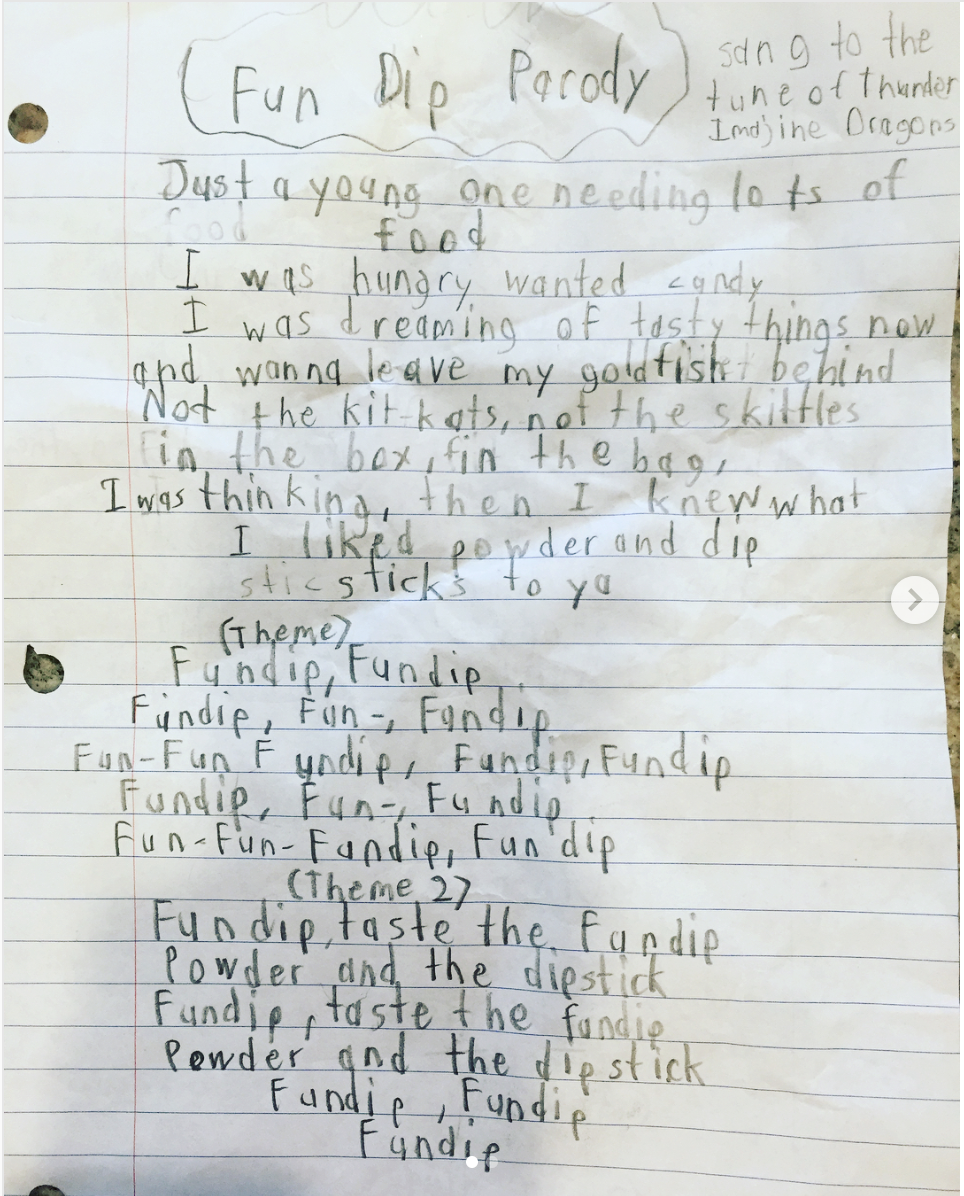 Fun Dip Parody
sang to the
tune of thunder
Imajine Dragons
Just a young one needing lots of
food food
I was hungry wanted candy
I was dreaming of tasty things now
and wanna leave my goldfish behind
Not the kit-kats, not the skittles
in the box, in the bag,
I was thinking, then I knew what
I liked powder and dip
stic sticks to ya
(Theme)
Fundip, Fundip
Fundip, Fun-, Fundip
Fun-Fun Fundip, Fundip, Fundip
Fundip, Fun-, Fundip
Fun-Fun-Fundip, Fun dip
(Theme 2)
Fundip, taste the Fundip
Powder and the dipstick
Fundip, taste the fundip
Powder and the dipstick
Fundip, Fundip
Fundip